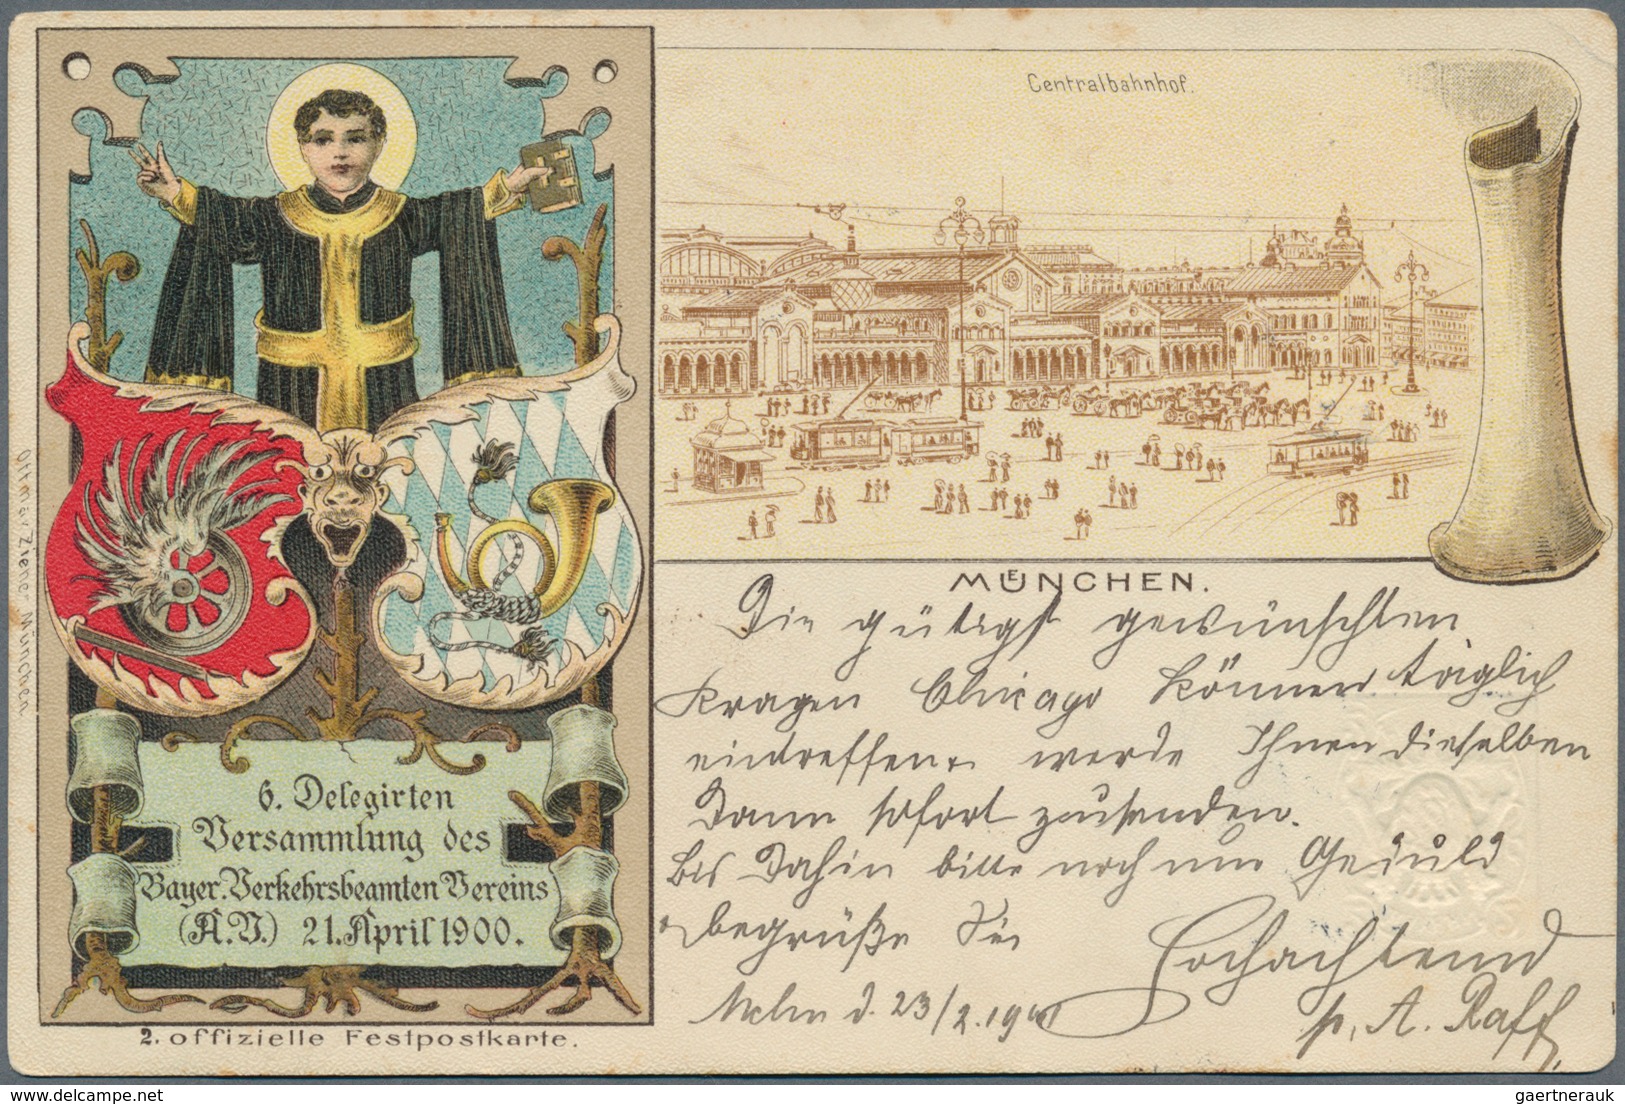 Centralbahnhof.
MÜNCHEN.
Die gütigst gewünschten
Kragen Chicago können täglich
eintreffen u. werde Ihnen dieselben
dann sofort zusenden.
Bis dahin bitte noch um Geduld
u. begrüße Sie
Hochachtend
Mchn d. 23/2. 1901
p. A. Raff
Ottmar Zieher München
6. Delegirten
Versammlung des
Bayer. Verkehrsbeamten Vereins
(A.V.) 21. April 1900.
2. offizielle Festpostkarte.
gaertnerauk